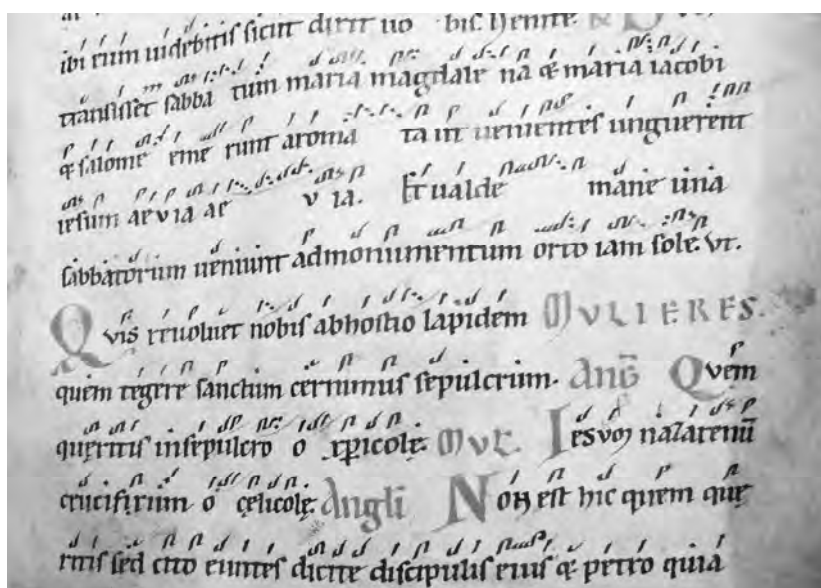 ibi eum uidebitis sicut dixit uo bis. Venite.
transisset sabba tum maria magdale na & maria iacobi
& salome eme runt aroma ta ut uenientes unguerent
iesum aeuia ae v ia. Et ualde mane una
sabbatorum ueniunt ad monumentum orto iam sole. Vt.
Qvis reuoluet nobis abhostio lapidem MVLIERES.
quem tegere sanctum cernimus sepulcrum. Ang̅ Qvem
queritis insepulcro o xp̅icole. MVL. Iesvm nazarenu̅
crucifixum o celicole. Angli Non est hic quem que
ritis sed cito euntes dicite discipulis eius & petro quia